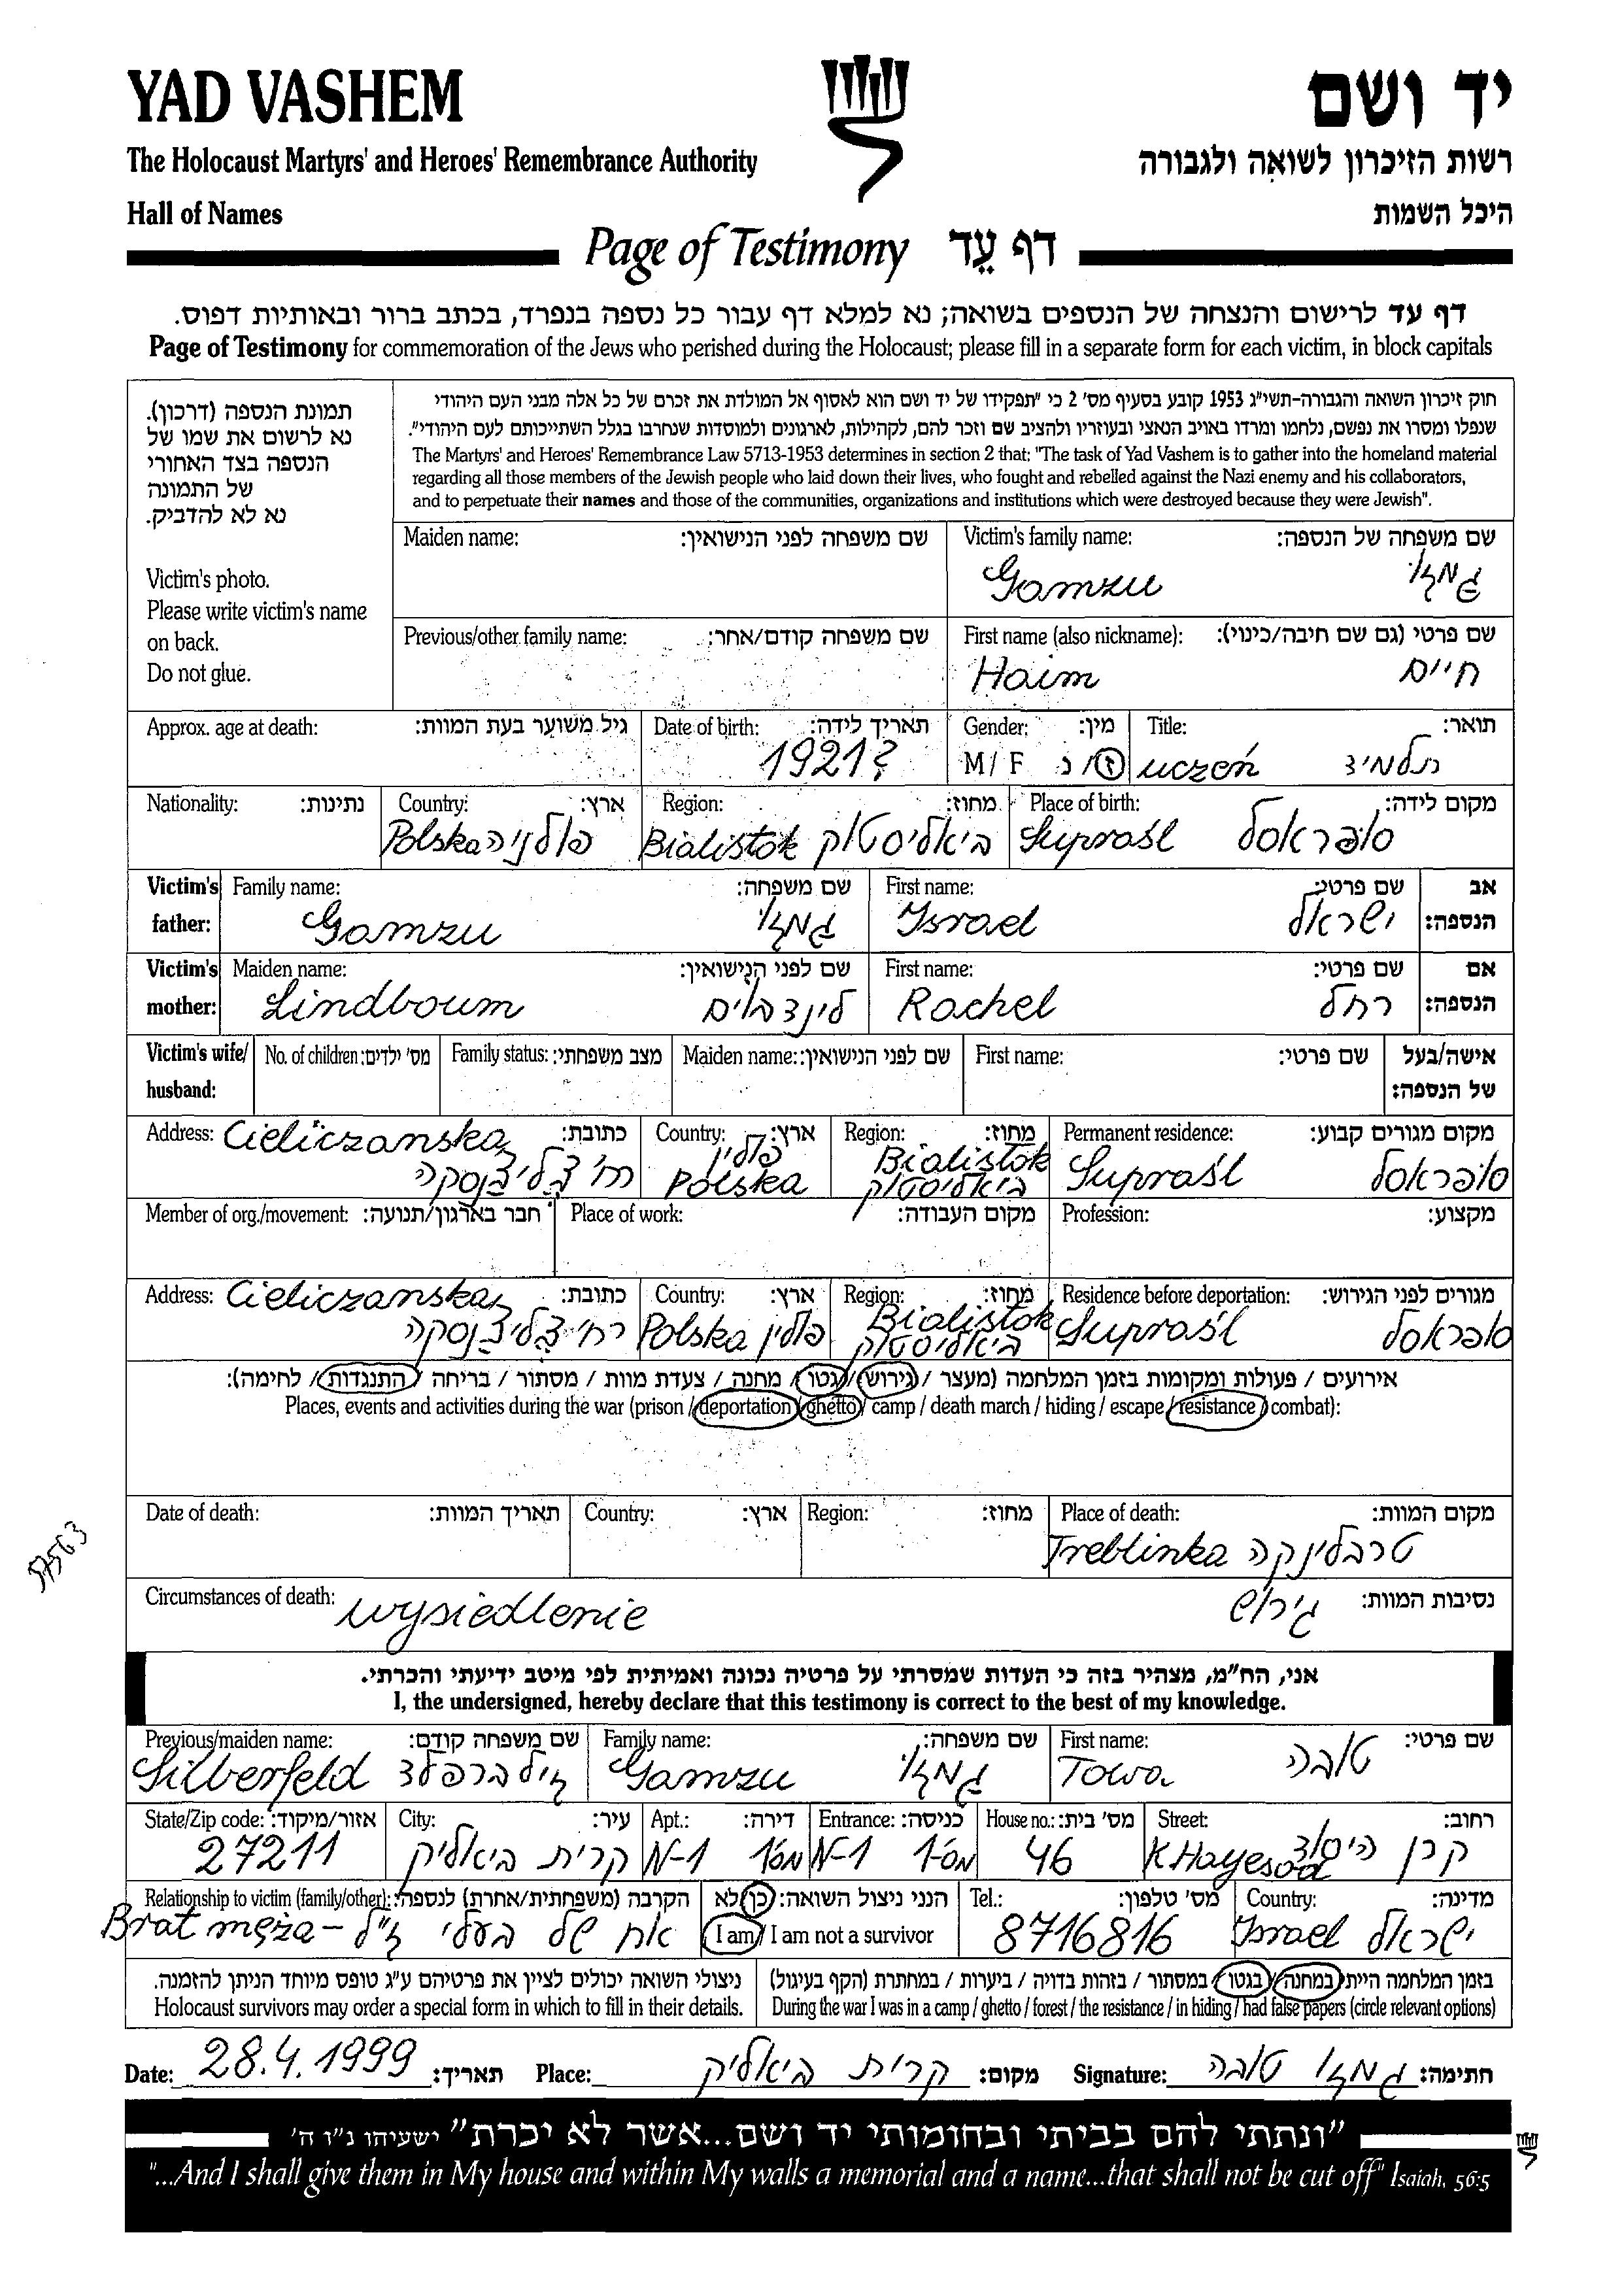 YAD VASHEM
יד ושם
The Holocaust Martyrs' and Heroes' Remembrance Authority
רשות הזיכרון לשואה ולגבורה
Hall of Names
היכל השמות
Page of Testimony דף עֵד
דף עד לרישום והנצחה של הנספים בשואה; נא למלא דף עבור כל נספה בנפרד, בכתב ברור ובאותיות דפוס.
Page of Testimony for commemoration of the Jews who perished during the Holocaust; please fill in a separate form for each victim, in block capitals
תמונת הנספה (דרכון).
נא לרשום את שמו של
הנספה בצד האחורי
של התמונה
נא לא להדביק.
Victim's photo.
Please write victim's name
on back.
Do not glue.
חוק זיכרון השואה והגבורה-תשי"ג 1953 קובע בסעיף מס' 2 כי "תפקידו של יד ושם הוא לאסוף אל המולדת את זכרם של כל אלה מבני העם היהודי
שנפלו ומסרו את נפשם, נלחמו ומרדו באויב הנאצי ובעוזריו ולהציב שם וזכר להם, לקהילות, לארגונים ולמוסדות שנחרבו בגלל השתייכותם לעם היהודי".
The Martyrs' and Heroes' Remembrance Law 5713-1953 determines in section 2 that: "The task of Yad Vashem is to gather into the homeland material
regarding all those members of the Jewish people who laid down their lives, who fought and rebelled against the Nazi enemy and his collaborators,
and to perpetuate their names and those of the communities, organizations and institutions which were destroyed because they were Jewish".
Maiden name: שם משפחה לפני הנישואין:
Victim's family name: שם משפחה של הנספה:
Gamzu גמזו
Previous/other family name: שם משפחה קודם/אחר:
First name (also nickname): שם פרטי (גם שם חיבה/כינוי):
Haim חיים
Approx. age at death: גיל משוער בעת המוות:
Date of birth: תאריך לידה:
1921?
Gender: מין:
M/ F ז/ נ
Title: תואר:
uczeń תלמיד
Nationality: נתינות:
Country: ארץ:
Polska פולניה
Region: מחוז:
Bialistok ביאליסטוק
Place of birth: מקום לידה:
Supraśl סופראסל
Victim's father: Family name: שם משפחה:
Gamzu גמזו
First name: שם פרטי: אב הנספה:
Israel ישראל
Victim's mother: Maiden name: שם לפני הנישואין:
Lindboum לינדבוים
First name: שם פרטי: אם הנספה:
Rachel רחל
Victim's wife/ husband: No. of children: מס' ילדים: Family status: מצב משפחתי: Maiden name: שם לפני הנישואין: First name: שם פרטי: אישה/בעל של הנספה:
Address: כתובת:
Cieliczanska
Country: ארץ:
פולין
Polska
Region: מחוז:
Bialistok
ביאליסטוק
Permanent residence: מקום מגורים קבוע:
Supraśl סופראסל
Member of org./movement: חבר בארגון/תנועה: Place of work: מקום העבודה: Profession: מקצוע:
Address: כתובת:
Cieliczanska
Country: ארץ:
Polska פולין
Region: מחוז:
Bialistok
ביאליסטוק
Residence before deportation: מגורים לפני הגירוש:
Supraśl סופראסל
אירועים / פעולות ומקומות בזמן המלחמה (מעצר / גירוש / גטו / מחנה / צעדת מוות / מסתור / בריחה / התנגדות / לחימה):
Places, events and activities during the war (prison / deportation / ghetto / camp / death march / hiding / escape / resistance / combat):
57563
Date of death: תאריך המוות: Country: ארץ: Region: מחוז: Place of death: מקום המוות:
Treblinka טרבלינקה
Circumstances of death: נסיבות המוות:
wysiedlenie גירוש
אני, הח"מ, מצהיר בזה כי העדות שמסרתי על פרטיה נכונה ואמיתית לפי מיטב ידיעתי והכרתי.
I, the undersigned, hereby declare that this testimony is correct to the best of my knowledge.
Previous/maiden name: שם משפחה קודם:
Silberfeld זילברפלד
Family name: שם משפחה:
Gamzu גמזו
First name: שם פרטי:
Towa טובה
State/Zip code: אזור/מיקוד:
27211
City: עיר:
קרית ביאליק
Apt.: דירה:
N-1 מס'1
Entrance: כניסה:
N-1 מס'1
House no.: מס' בית:
46
Street: רחוב:
K Hayesod קרן היסוד
Relationship to victim (family/other): הקרבה (משפחתית/אחרת) לנספה:
Brat męża – אח של בעלי ז"ל
הנני ניצול השואה: כן / לא
I am / I am not a survivor
Tel.: מס' טלפון:
8716816
Country: מדינה:
Israel ישראל
ניצולי השואה יכולים לציין את פרטיהם ע"ג טופס מיוחד הניתן להזמנה.
Holocaust survivors may order a special form in which to fill in their details.
בזמן המלחמה הייתי במחנה / בגטו / במסתור / בזהות בדויה / ביערות / במחתרת (הקף בעיגול)
During the war I was in a camp / ghetto / forest / the resistance / in hiding / had false papers (circle relevant options)
Date: 28.4.1999 תאריך: Place: קרית ביאליק מקום: Signature: גמזו טובה חתימה:
"ונתתי להם בביתי ובחומותי יד ושם...אשר לא יכרת" ישעיהו נ"ו ה'
"...And I shall give them in My house and within My walls a memorial and a name...that shall not be cut off" Isaiah, 56:5